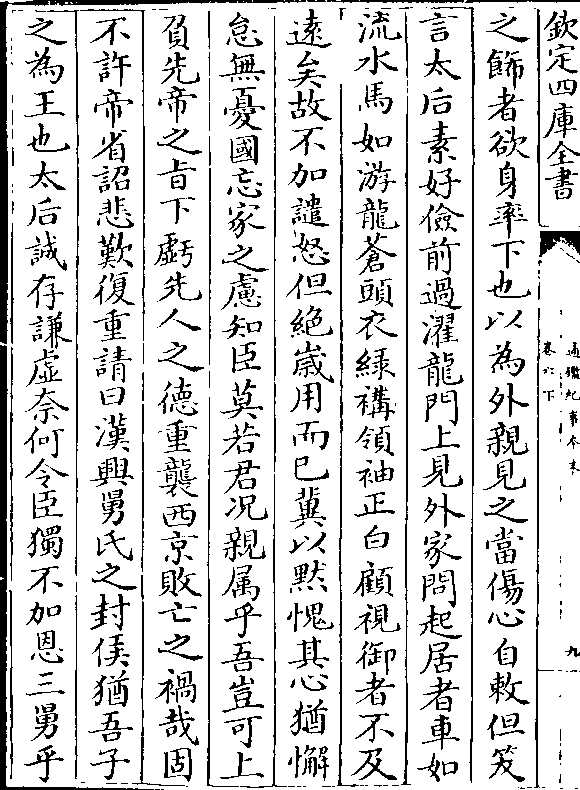 欽定四庫全書
通鑑紀事本末
卷六下
九
之飾者欲身率下也以為外親見之當傷心自敕但笑
言太后素好儉前過濯龍門上見外家問起居者車如
流水馬如游龍蒼頭衣綠褠領袖正白顧視御者不及
遠矣故不加譴怒但絶嵗用而已冀以黙愧其心猶懈
怠無憂國忘家之慮知臣莫若君况親属乎吾豈可上
負先帝之㫖下虧先人之德重襲西京敗亡之禍哉固
不許帝省詔悲歎復重請曰漢興舅氏之封侯猶吾子
之為王也太后誠存謙虛奈何令臣獨不加恩三舅乎